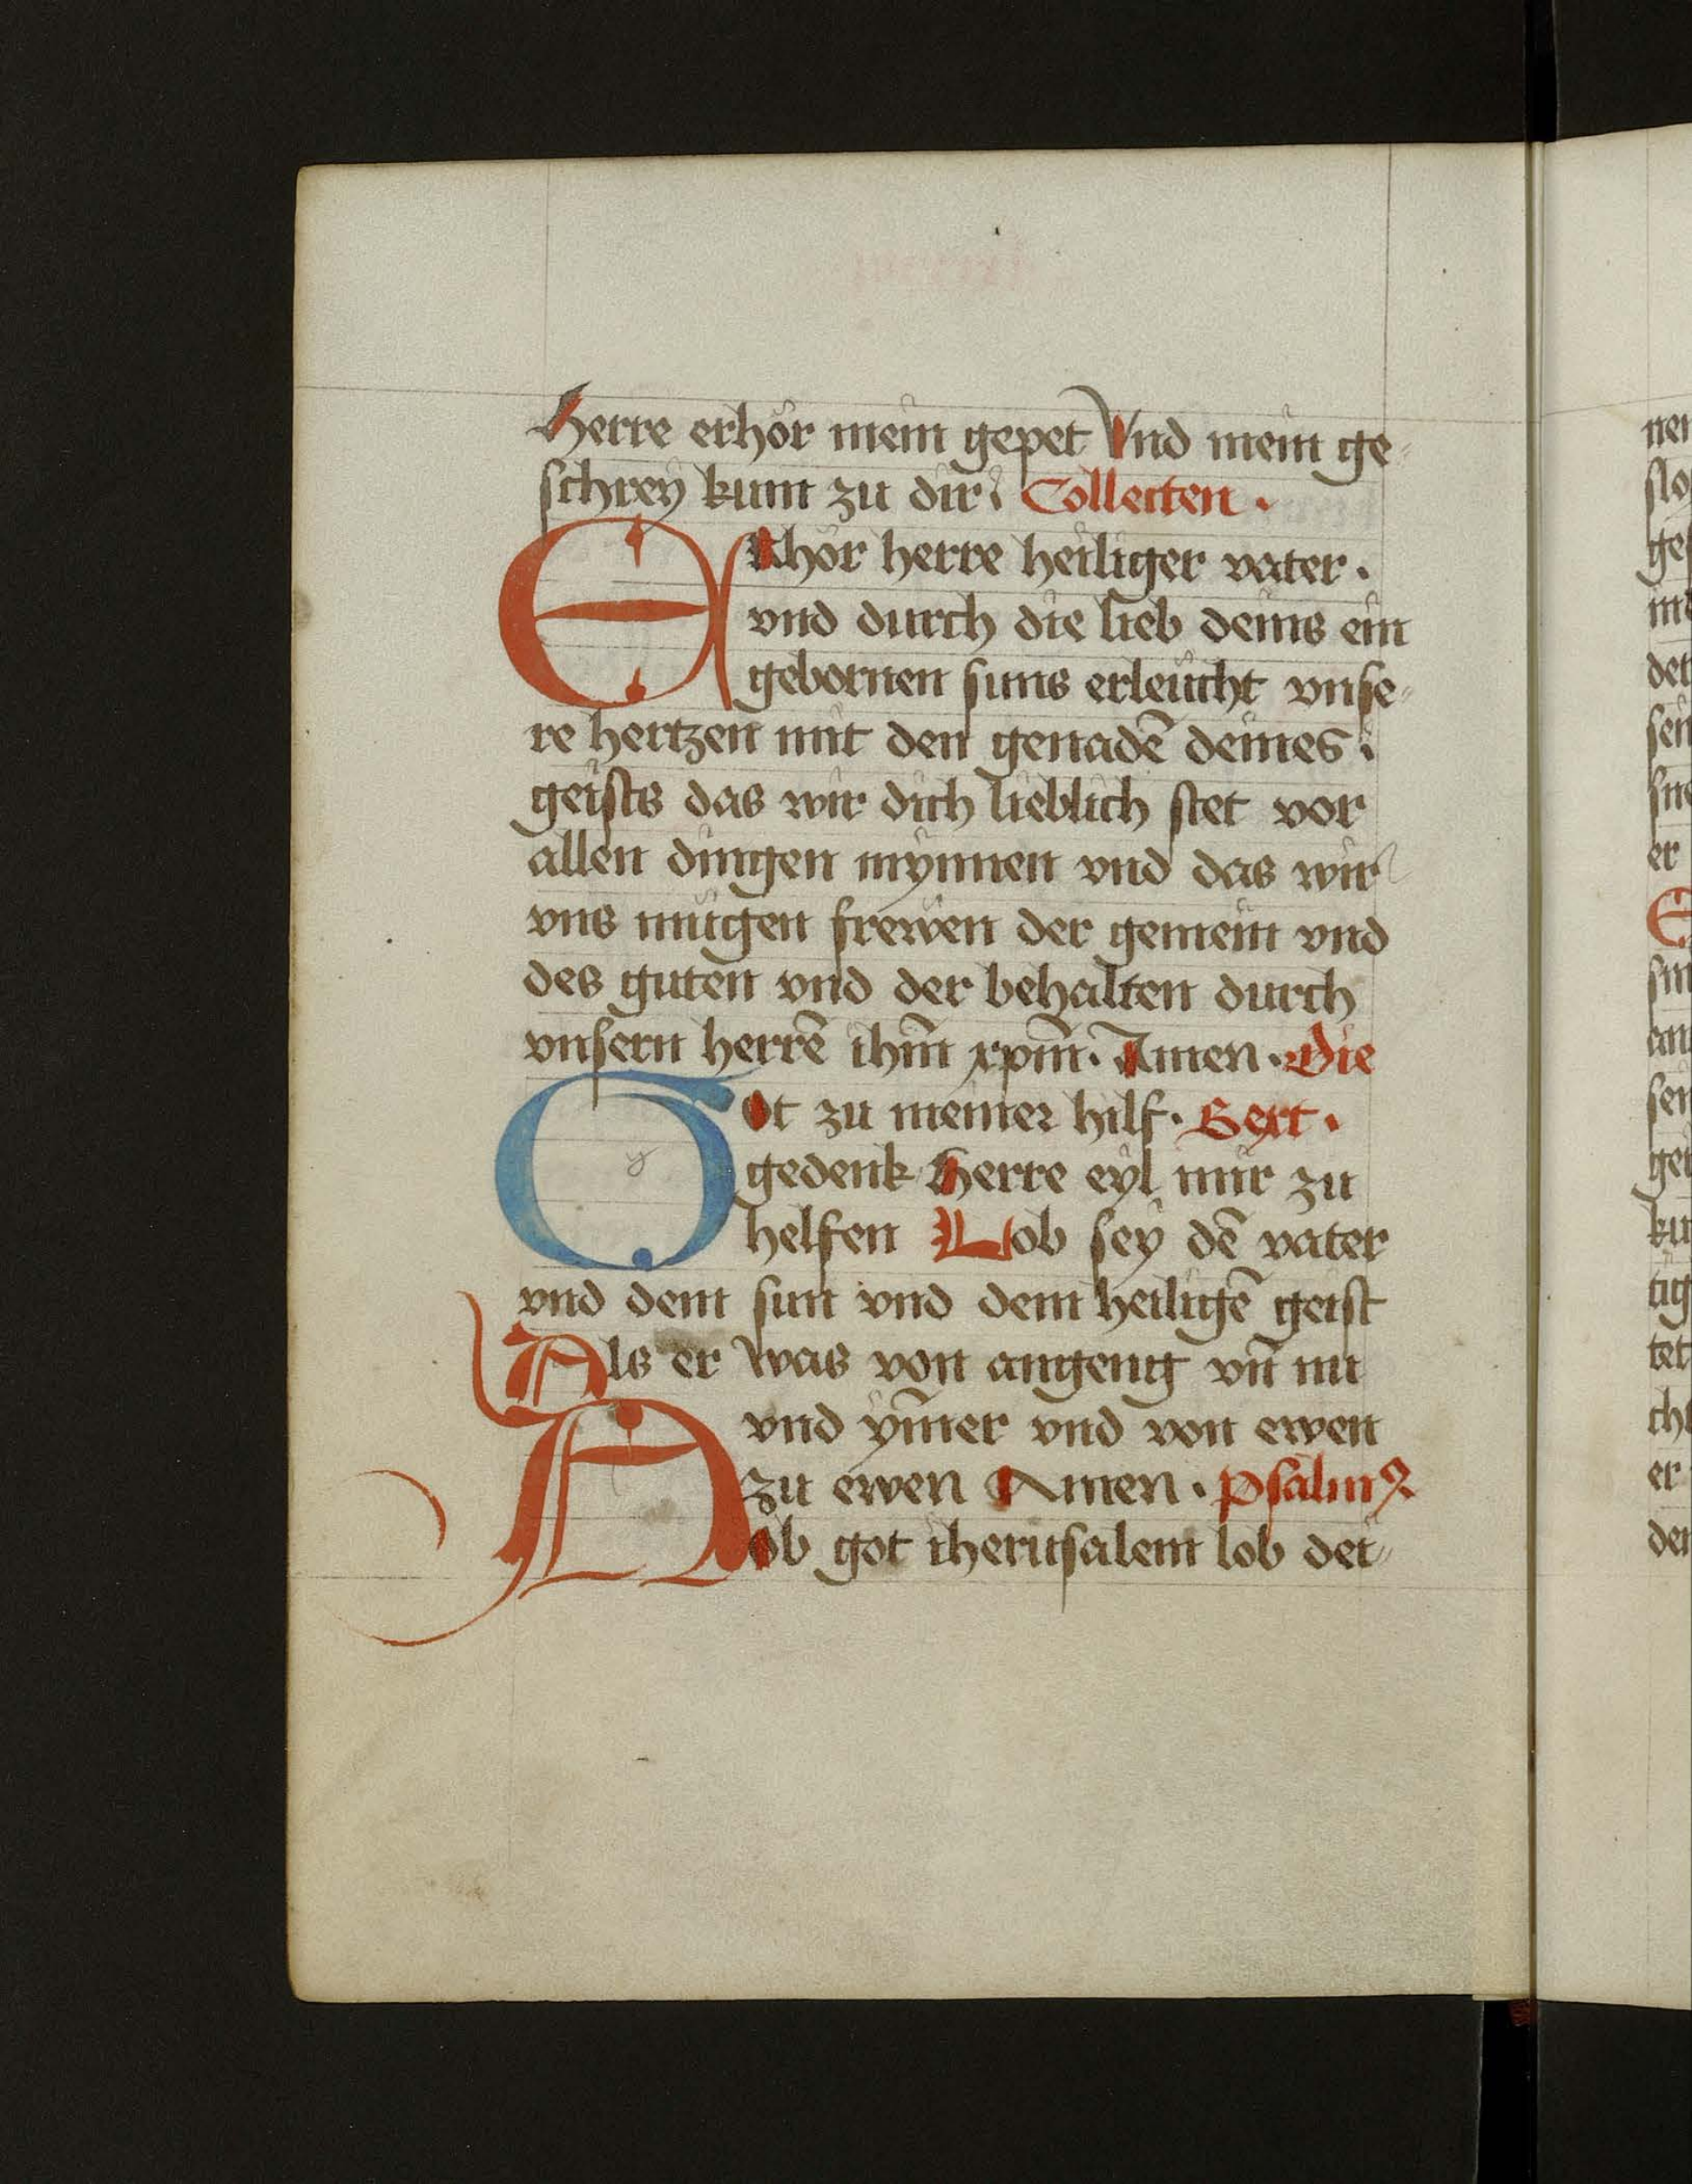 Herre erhör mein gepet Vnd mein ge-
schrey kum zu dir. Collecten.
ERhör herre heiliger vater.
vnd durch die lieb deins ein
gebornen suns erleücht vnse-
re hertzen mit den genadē deines
geists das wir dich lieblich stet vor
allen dingen mynnen vnd das wir
vns mügen frewen der gemein vnd
des guten vnd der behalten durch
vnsern herrē ihm̄ xpm̄. Amen. Die
GOt zu meiner hilf. Sext.
gedenk Herre eyl mir zu
helfen Lob sey dē vater
vnd dem sun vnd dem heiligē geist
Als er was von angeng vn̄ nu
vnd ym̄er vnd von ewen
zu ewen Amen. psalmꝫ
Lob got iherusalem lob dei-